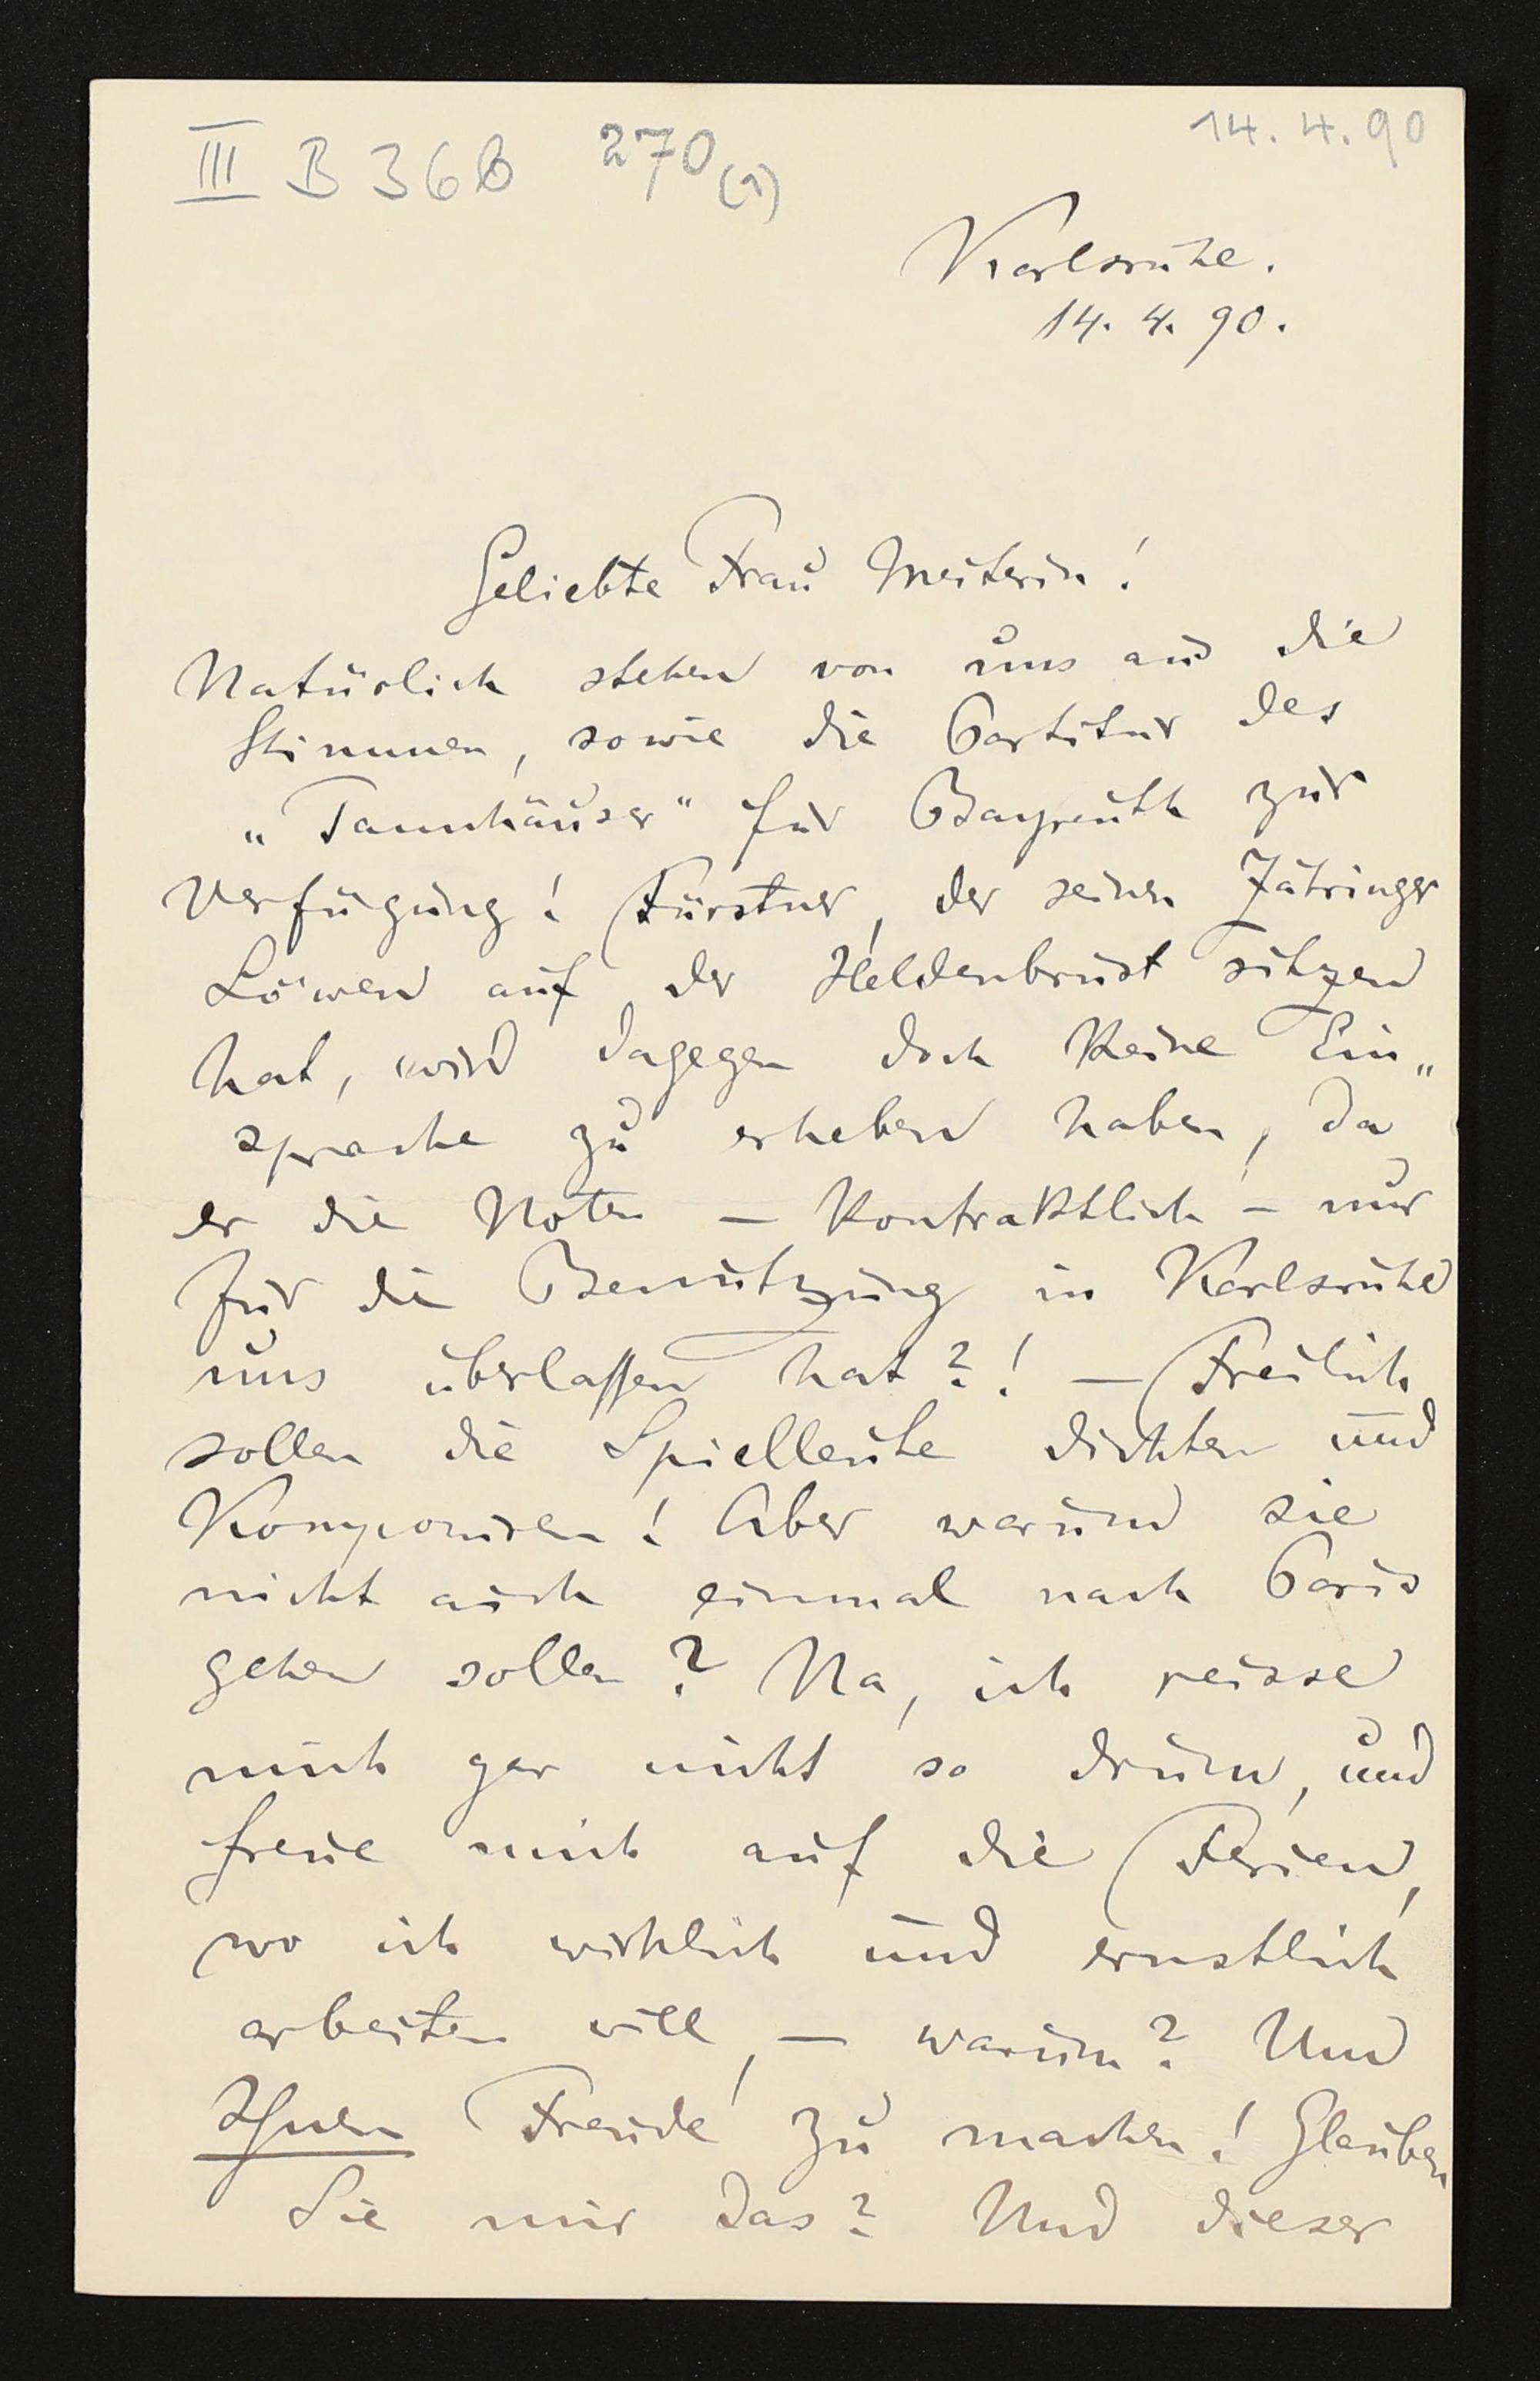 III B 36 b 270 (1)
14. 4. 90
Karlsruhe.
14. 4. 90.
Geliebte Frau Meisterin!
Natürlich stehen von uns aus die
Stimmen, sowie die Partitur des
„Tannhäuser" für Bayreuth zur
Verfügung! Fürstner, der seinen Zähringer
Löwen auf der Heldenbrust sitzen
hat, wird dagegen doch keine Ein„
sprache zu erheben haben, da
er die Noten – kontraktlich – nur
für die Benutzung in Karlsruhe
uns überlassen hat?! – Freilich
sollen die Spielleute dichten und
komponiren! Aber warum sie
nicht auch einmal nach Paris
gehen sollen? Na, ich reisse
mich gar nicht so drum, und
freue mich auf die Ferien,
wo ich wirklich und ernstlich
arbeiten will, – warum? Um
Ihnen Freude zu machen! Glauben
Sie mir das? Und dieser